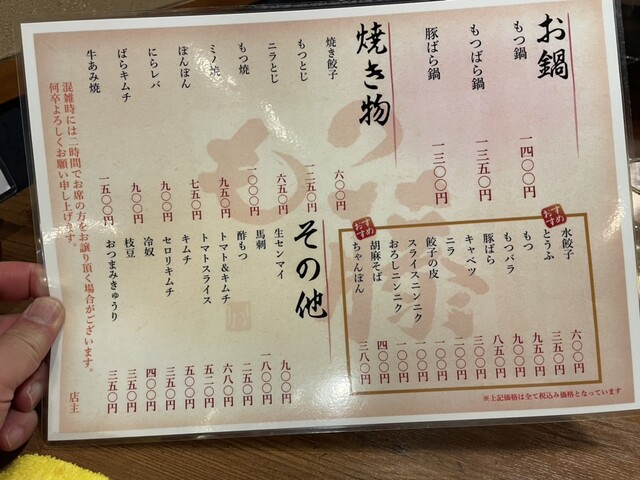 お鍋
もつ鍋 一四〇〇円
もつばら鍋 一三五〇円
豚ばら鍋 一三〇〇円
焼き物
焼き餃子 六〇〇円
もつとじ 一二五〇円
ニラとじ 六五〇円
もつ焼 一〇〇〇円
ミノ焼 九五〇円
ぽんぽん 七五〇円
にらレバ 九〇〇円
ばらキムチ 九〇〇円
牛あみ焼 一五〇〇円
水餃子 六〇〇円
おすすめ
とうふ 三五〇円
もつ 九五〇円
もつバラ 九〇〇円
豚ばら 八五〇円
キャベツ 三〇〇円
ニラ 二〇〇円
餃子の皮 一〇〇円
スライスニンニク 一〇〇円
おろしニンニク 一〇〇円
胡麻そば 四〇〇円
おすすめ
ちゃんぽん 三八〇円
その他
生センマイ 九〇〇円
馬刺 一八〇〇円
酢もつ 二五〇円
トマト&キムチ 六八〇円
トマトスライス 五二〇円
キムチ 五〇〇円
セロリキムチ 三五〇円
冷奴 四〇〇円
枝豆 三五〇円
おつまみきゅうり 三五〇円
混雑時には二時間でお席の方をお譲り頂く場合がございます。
何卒よろしくお願い申し上げます。
店主
※上記価格は全て税込み価格となっています